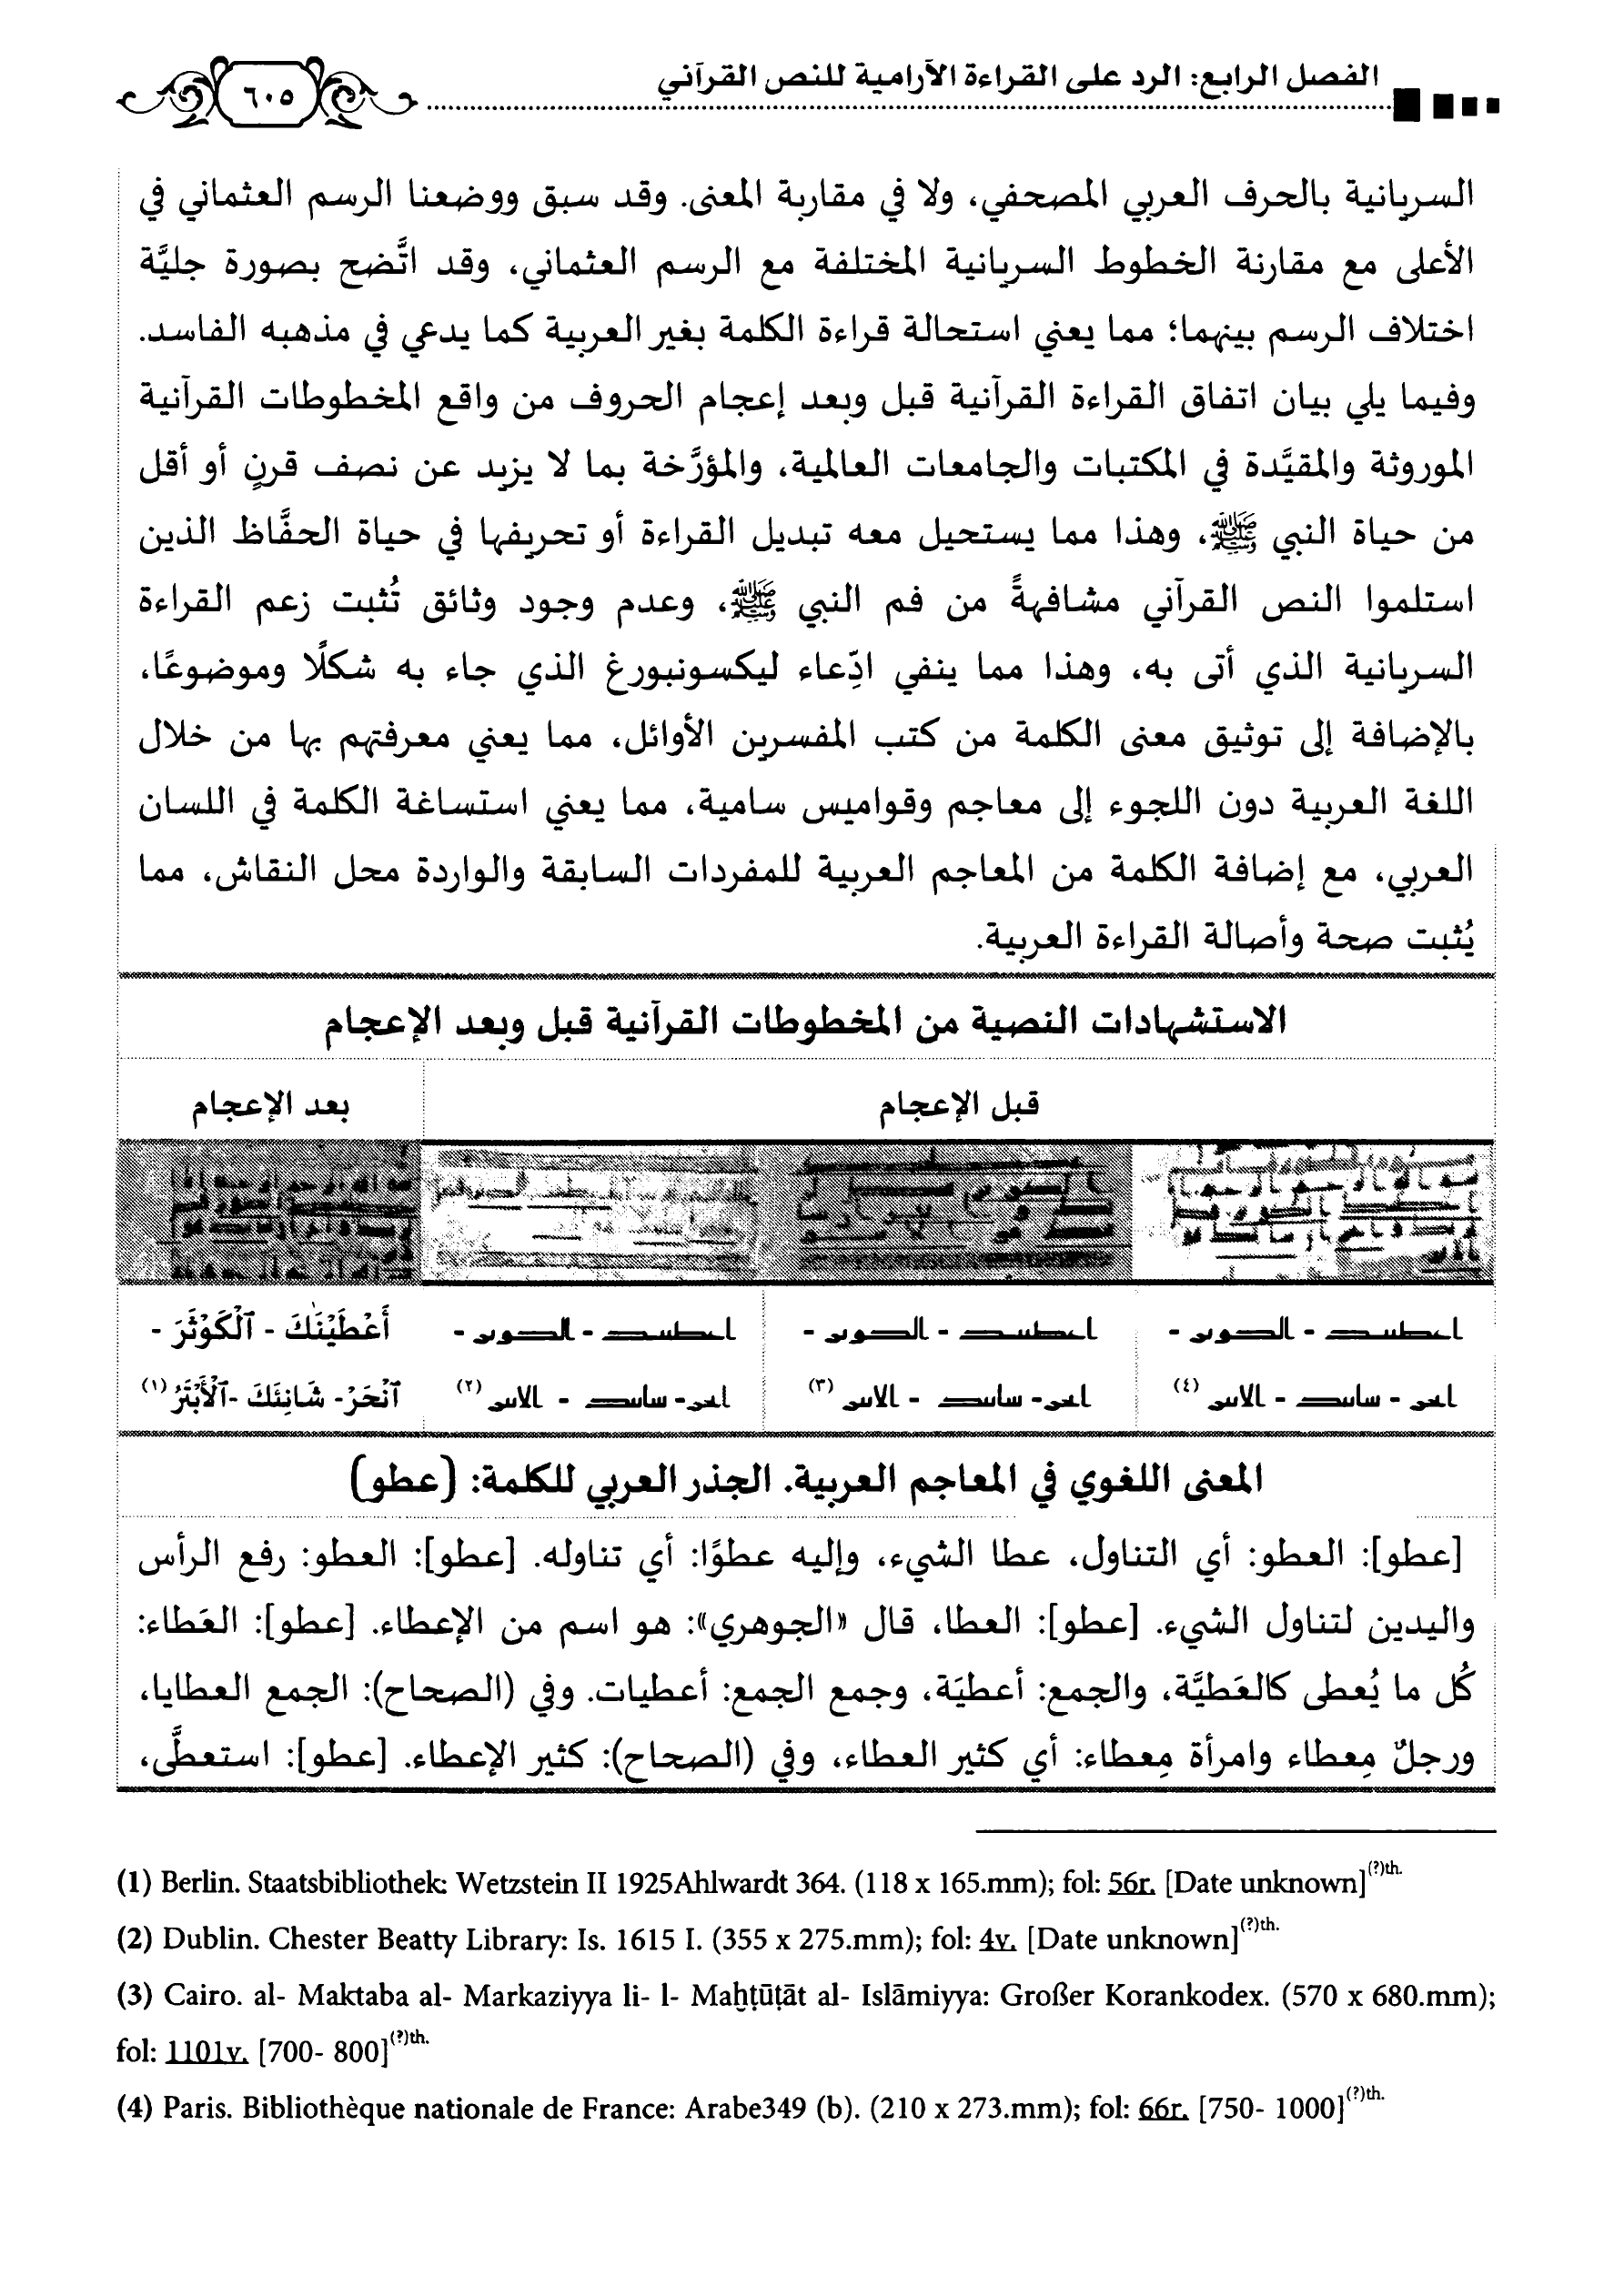 الفصل الرابع: الرد على القراءة الآرامية للنص القرآني
٦٠٥
السريانية بالحرف العربي المصحفي، ولا في مقاربة المعنى. وقد سبق ووضعنا الرسم العثماني في
الأعلى مع مقارنة الخطوط السريانية المختلفة مع الرسم العثماني، وقد اتَّضح بصورة جليَّة
اختلاف الرسم بينهما؛ مما يعني استحالة قراءة الكلمة بغير العربية كما يدعي في مذهبه الفاسد.
وفيما يلي بيان اتفاق القراءة القرآنية قبل وبعد إعجام الحروف من واقع المخطوطات القرآنية
الموروثة والمقيَّدة في المكتبات والجامعات العالمية، والمؤرَّخة بما لا يزيد عن نصف قرنٍ أو أقل
من حياة النبي ﷺ، وهذا مما يستحيل معه تبديل القراءة أو تحريفها في حياة الحفَّاظ الذين
استلموا النص القرآني مشافهةً من فم النبي ﷺ، وعدم وجود وثائق تُثبت زعم القراءة
السريانية الذي أتى به، وهذا مما ينفي ادِّعاء ليكسونبورغ الذي جاء به شكلًا وموضوعًا،
بالإضافة إلى توثيق معنى الكلمة من كتب المفسرين الأوائل، مما يعني معرفتهم بها من خلال
اللغة العربية دون اللجوء إلى معاجم وقواميس سامية، مما يعني استساغة الكلمة في اللسان
العربي، مع إضافة الكلمة من المعاجم العربية للمفردات السابقة والواردة محل النقاش، مما
يُثبت صحة وأصالة القراءة العربية.
الاستشهادات النصية من المخطوطات القرآنية قبل وبعد الإعجام
قبل الإعجام
بعد الإعجام
(٤)
(٣)
(٢)
أَعْطَيْنَٰكَ - ٱلْكَوْثَرَ -
ٱنْحَرْ- شَانِئَكَ -ٱلْأَبْتَرُ (١)
المعنى اللغوي في المعاجم العربية. الجذر العربي للكلمة: (عطو)
[عطو]: العطو: أي التناول، عطا الشيء، وإليه عطوًا: أي تناوله. [عطو]: العطو: رفع الرأس
واليدين لتناول الشيء. [عطو]: العطا، قال «الجوهري»: هو اسم من الإعطاء. [عطو]: العَطاء:
كُل ما يُعطى كالعَطيَّة، والجمع: أعطيَة، وجمع الجمع: أعطيات. وفي (الصحاح): الجمع العطايا،
ورجلٌ مِعطاء وامرأة مِعطاء: أي كثير العطاء، وفي (الصحاح): كثير الإعطاء. [عطو]: استعطَّى،
(1) Berlin. Staatsbibliothek: Wetzstein II 1925Ahlwardt 364. (118 x 165.mm); fol: 56r. [Date unknown](?)th.
(2) Dublin. Chester Beatty Library: Is. 1615 I. (355 x 275.mm); fol: 4v. [Date unknown](?)th.
(3) Cairo. al- Maktaba al- Markaziyya li- l- Maḫṭūṭāt al- Islāmiyya: Großer Korankodex. (570 x 680.mm);
fol: 1101v. [700- 800](?)th.
(4) Paris. Bibliothèque nationale de France: Arabe349 (b). (210 x 273.mm); fol: 66r. [750- 1000](?)th.